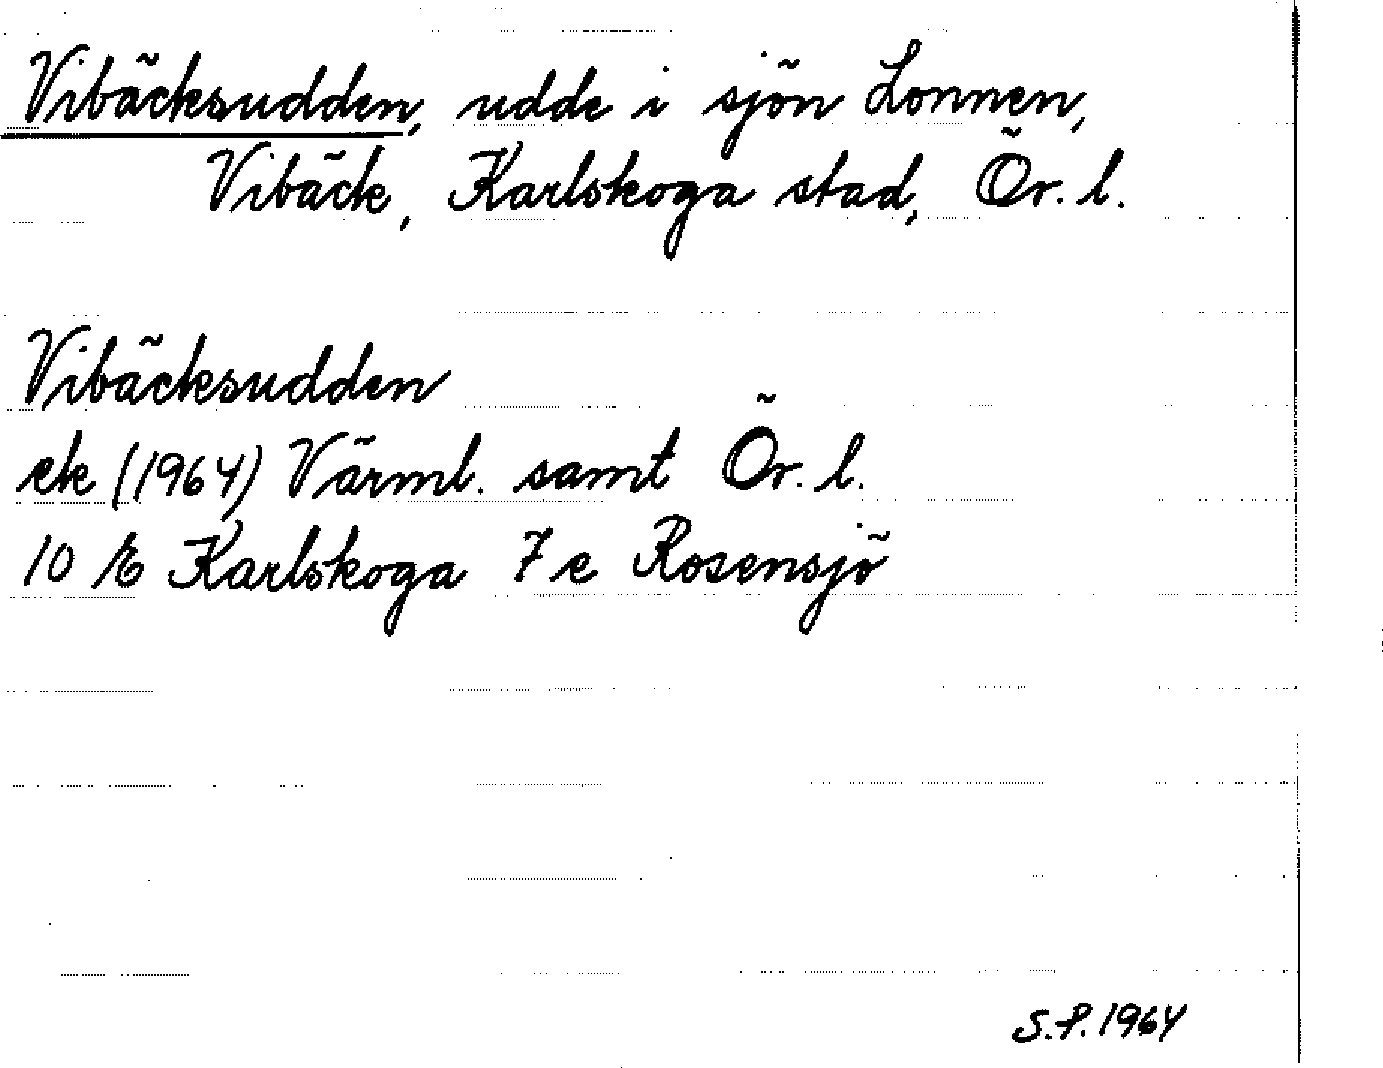 Vibäcksudden, udde i sjön Lonnen,
Vibäck, Karlskoga stad, Ör. l.
Vibäcksudden
ek (1964) Värml. samt Ör. l.
10 E Karlskoga 7 e Rosensjö
S.P. 1964